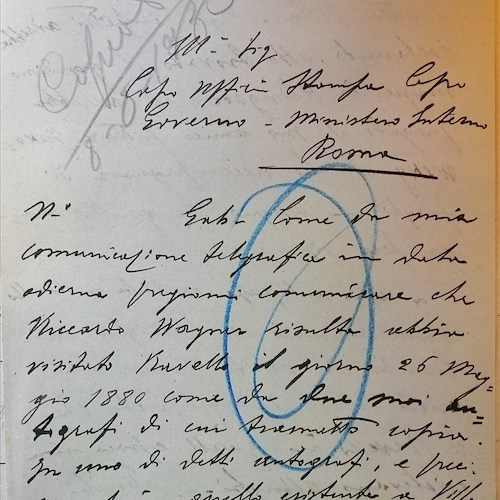 Ill. Sig
Capo Ufficio Stampa Capo
Governo - Ministero Interno
Roma
N° Gab. Come da mia
comunicazione telegrafica in data
odierna pregiomi comunicare che
Riccardo Wagner risulta abbia
visitato Ravello il giorno 26 Mag-
gio 1880 come da due suoi au-
tografi di cui trasmetto copia.
In uno di detti autografi, e preci-
quello esistente a Villa